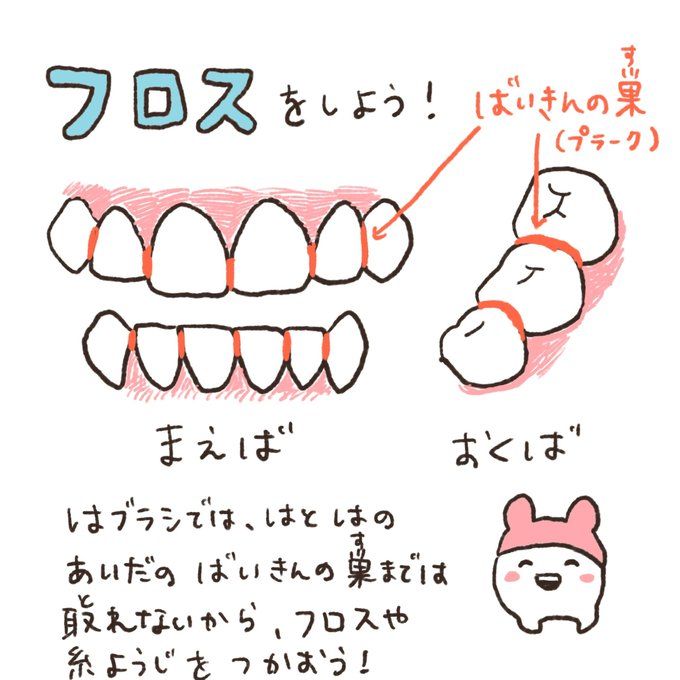 フロスをしよう!
ばいきんの巣
す
(プラーク)
まえば
おくば
はブラシでは、はとはの
あいだの ばいきんの巣までは
す
取れないから、フロスや
と
糸ようじをつかおう!